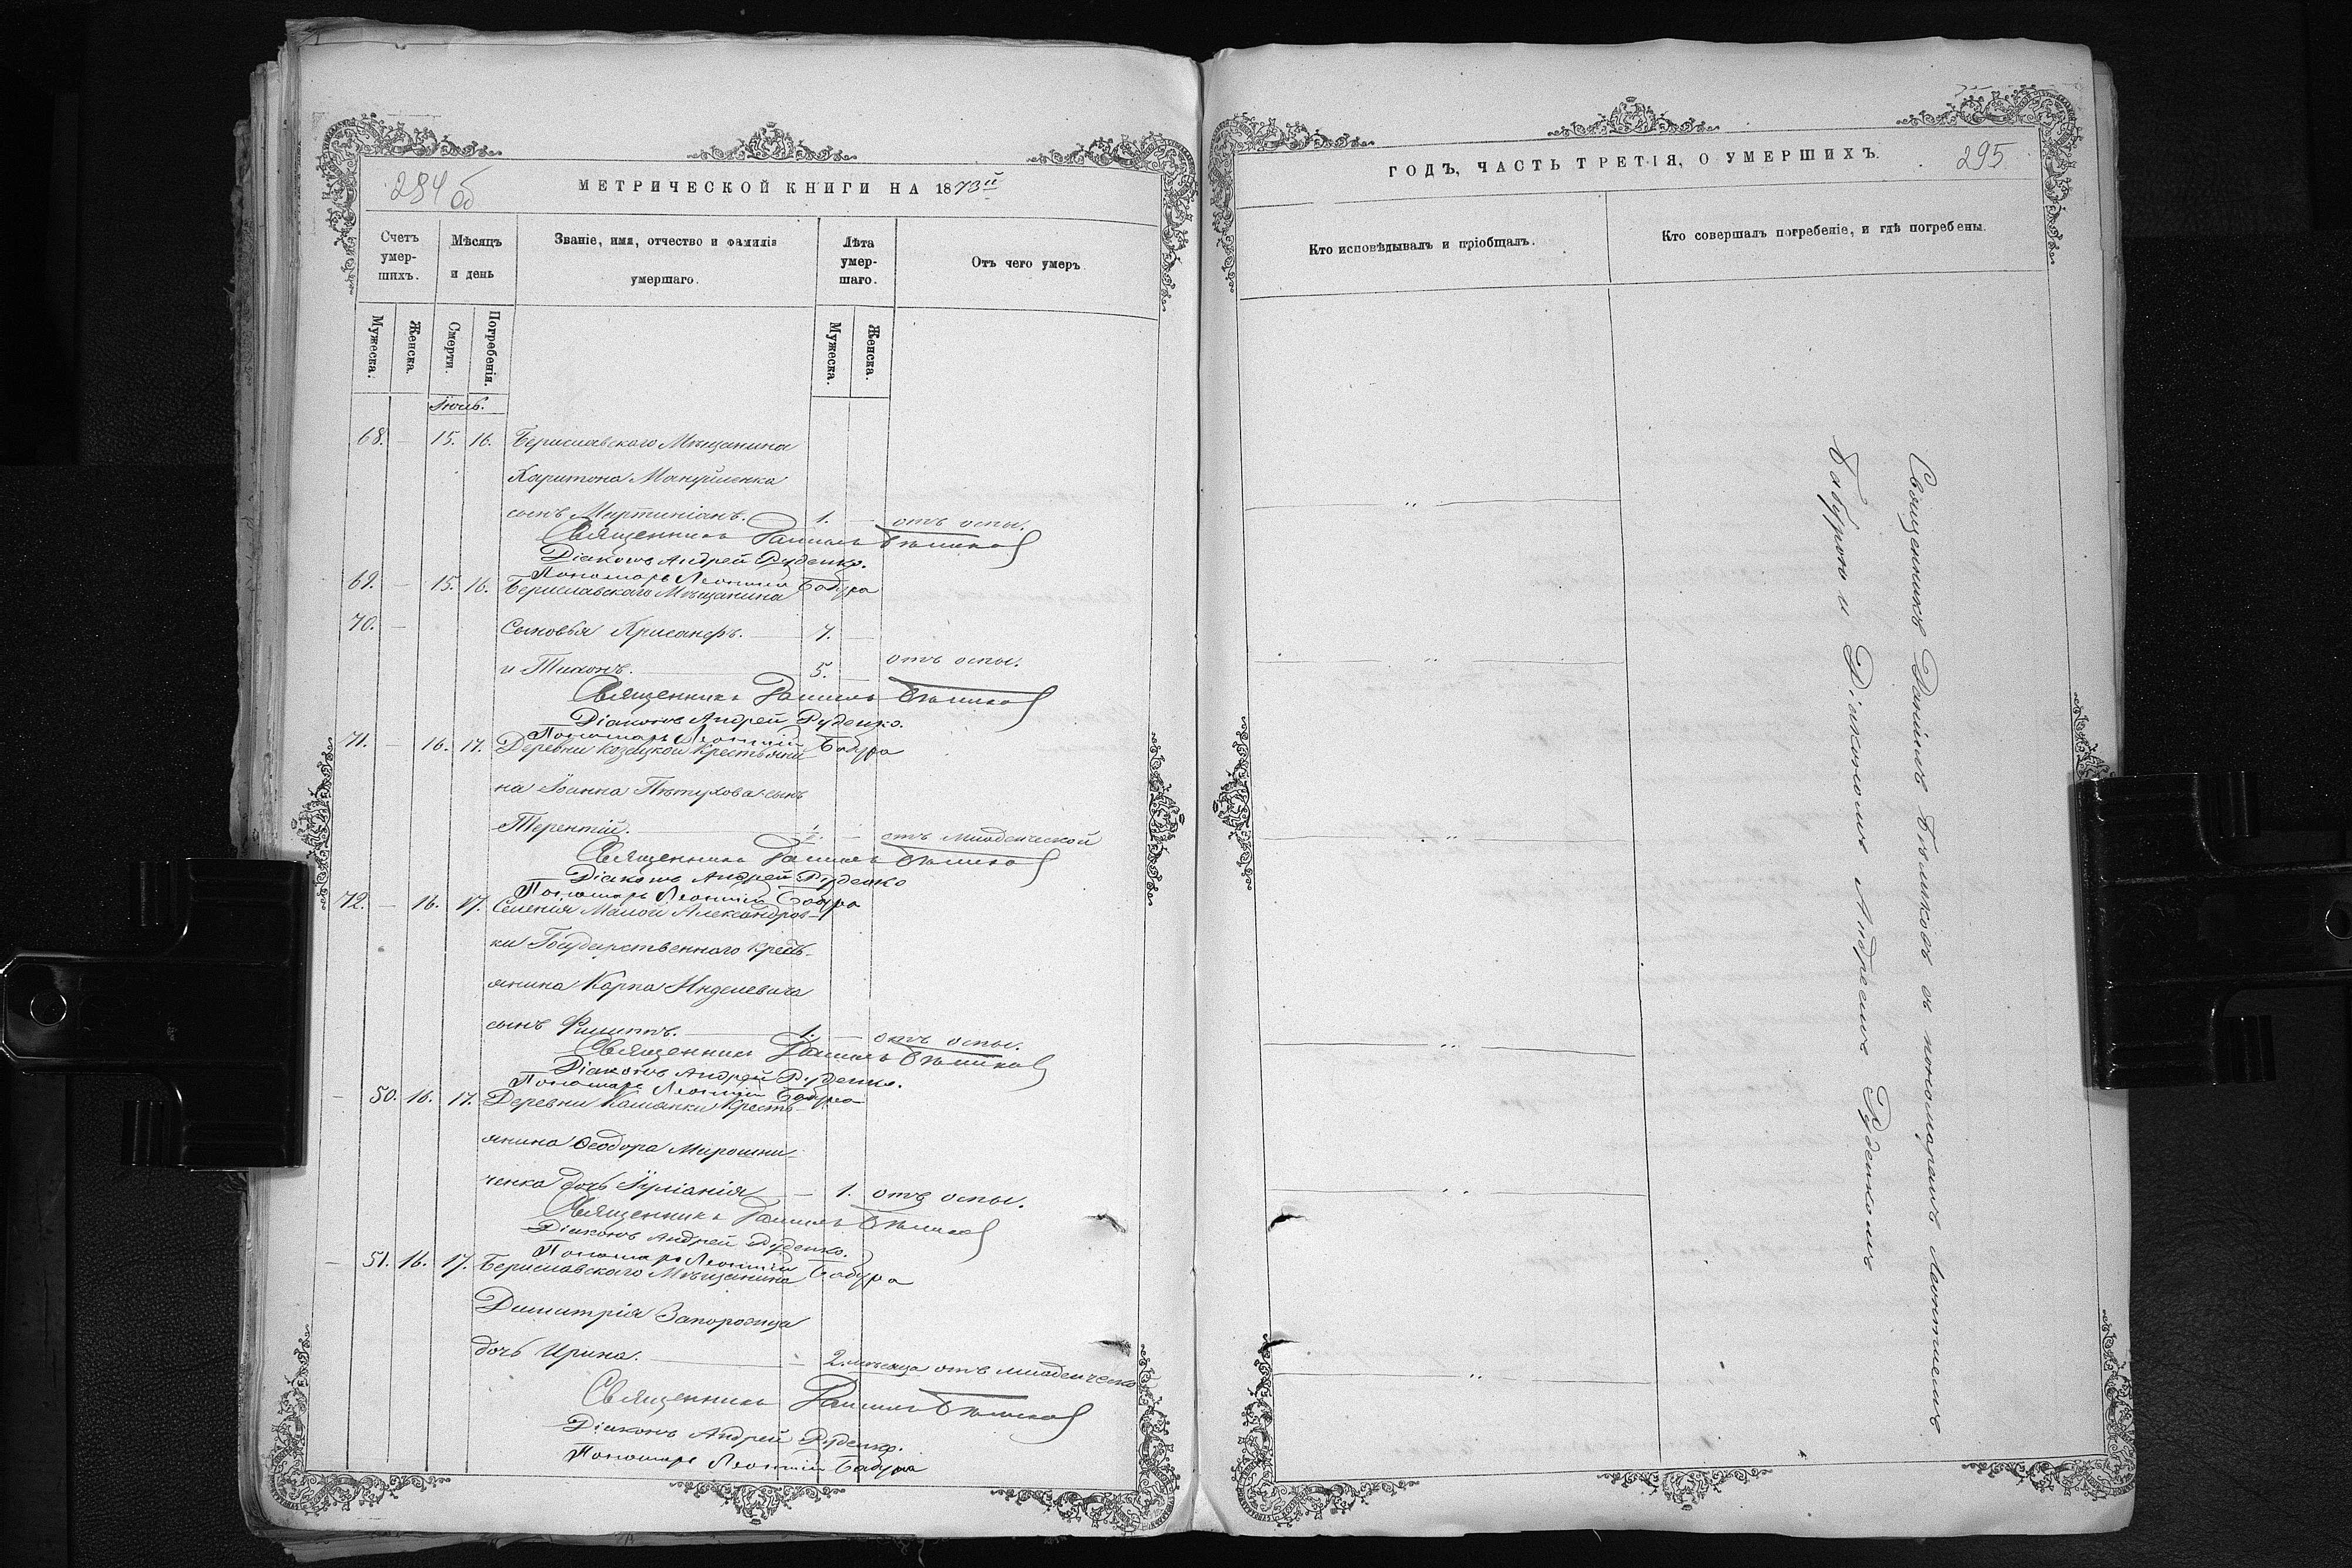 294 об
МЕТРИЧЕСКОЙ КНИГИ НА 1873й
Счетъ умер-шихъ.
Мѣсяцъ и день
Званіе, имя, отчество и фамилія умершаго.
Лѣта умер-шаго.
Отъ чего умеръ
Мужеска.
Женска.
Смерти.
Погребенія.
Мужеска.
Женска.
Іюль.
68. — 15. 16. Бериславскаго Мѣщанина
Харитона Мануйленка
сынъ Мартиніанъ. 1. — отъ оспы.
Священникъ Даніилъ Бѣликовъ
Діаконъ Андрей Руденко.
Пономарь Леонтій Бабура
69. — 15. 16. Бериславскаго Мѣщанина
70. — Сыновья Хрисанфъ. — 7. —
и Тихонъ. — 5. — отъ оспы.
Священникъ Даніилъ Бѣликовъ
Діаконъ Андрей Руденко.
Пономарь Леонтій Бабура
71. — 16. 17. Деревни Козацкой Крестьяни-
на Іоанна Пѣтухова сынъ
Терентій. — ½. — отъ младенческой
Священникъ Даніилъ Бѣликовъ
Діаконъ Андрей Руденко
Пономарь Леонтій Бабура
72. — 16. 17. Селенія Малой Александров-
ки Государственнаго Кресть-
янина Карпа
сынъ Филиппъ. — 1. — отъ оспы.
Священникъ Даніилъ Бѣликовъ
Діаконъ Андрей Руденко.
Пономарь Леонтій Бабура
— 50. 16. 17. Деревни Каменки Кресть-
янина Ѳеодора Мирошни-
ченка дочь Іуліанія — 1. отъ оспы.
Священникъ Даніилъ Бѣликовъ
Діаконъ Андрей Руденко.
Пономарь Леонтій Бабура
— 51. 16. 17. Бериславскаго Мѣщанина
Димитрія Запорожца
дочь Ирина. — 2. мѣсяца отъ младенческо
Священникъ Даніилъ Бѣликовъ
Діаконъ Андрей Руденко.
Пономарь Леонтій Бабура
ГОДЪ, ЧАСТЬ ТРЕТІЯ, О УМЕРШИХЪ.
295.
Кто исповѣдывалъ и пріобщалъ.
Кто совершалъ погребеніе, и гдѣ погребены.
Священникъ Даніилъ Бѣликовъ съ пономаремъ Леонтіемъ
Бабурою и Діакономъ Андреемъ Руденкомъ